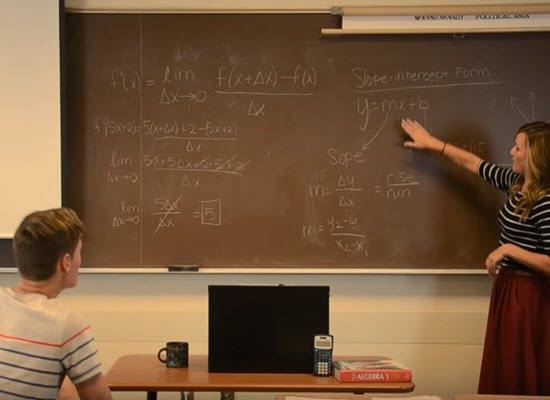 RAND McNALLY POLITICAL ASIA
f'(x) = lim Δx→0 f(x+Δx)-f(x) / Δx
f'(5x+2) = 5(x+Δx)+2-(5x+2) / Δx
lim Δx→0 5x+5Δx+2-5x-2 / Δx
lim Δx→0 5Δx / Δx = 5
Slope-intercept Form
y=mx+b
Slope
m = Δy / Δx = rise / run
m = y₂-y₁ / x₂-x₁
ALGEBRA 1